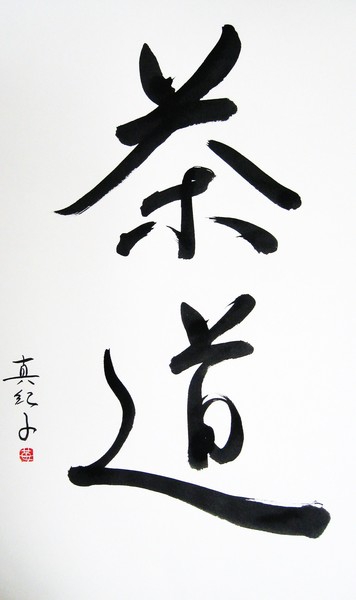 茶道
真紀子